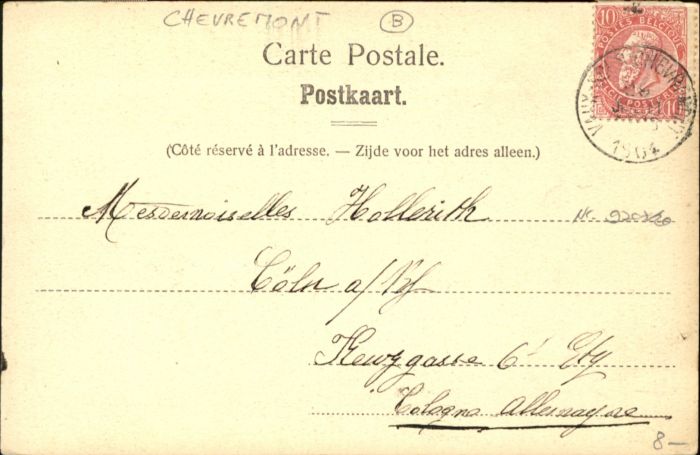 CHEVREMONT B
10 10
POSTES BELGIQUE
Carte Postale.
Postkaart.
1904
(Côté réservé à l'adresse. — Zijde voor het adres alleen.)
Mesdemoiselles Hollerith
Cöln a/Rh
6
Cologne Allemagne
8—